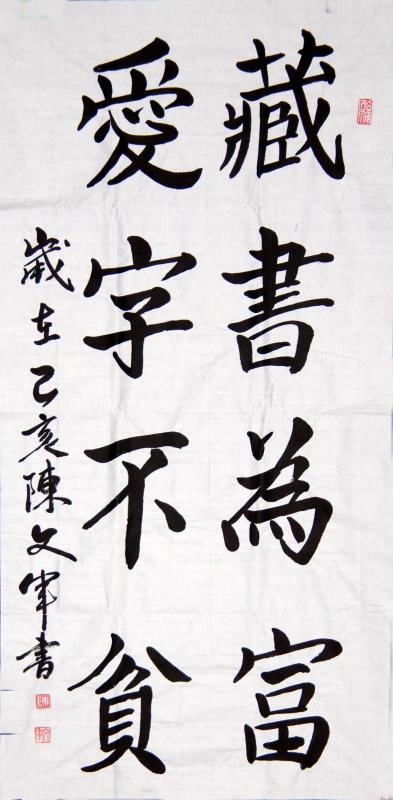 藏書為富
愛字不貧
歲在己亥陳文軍書